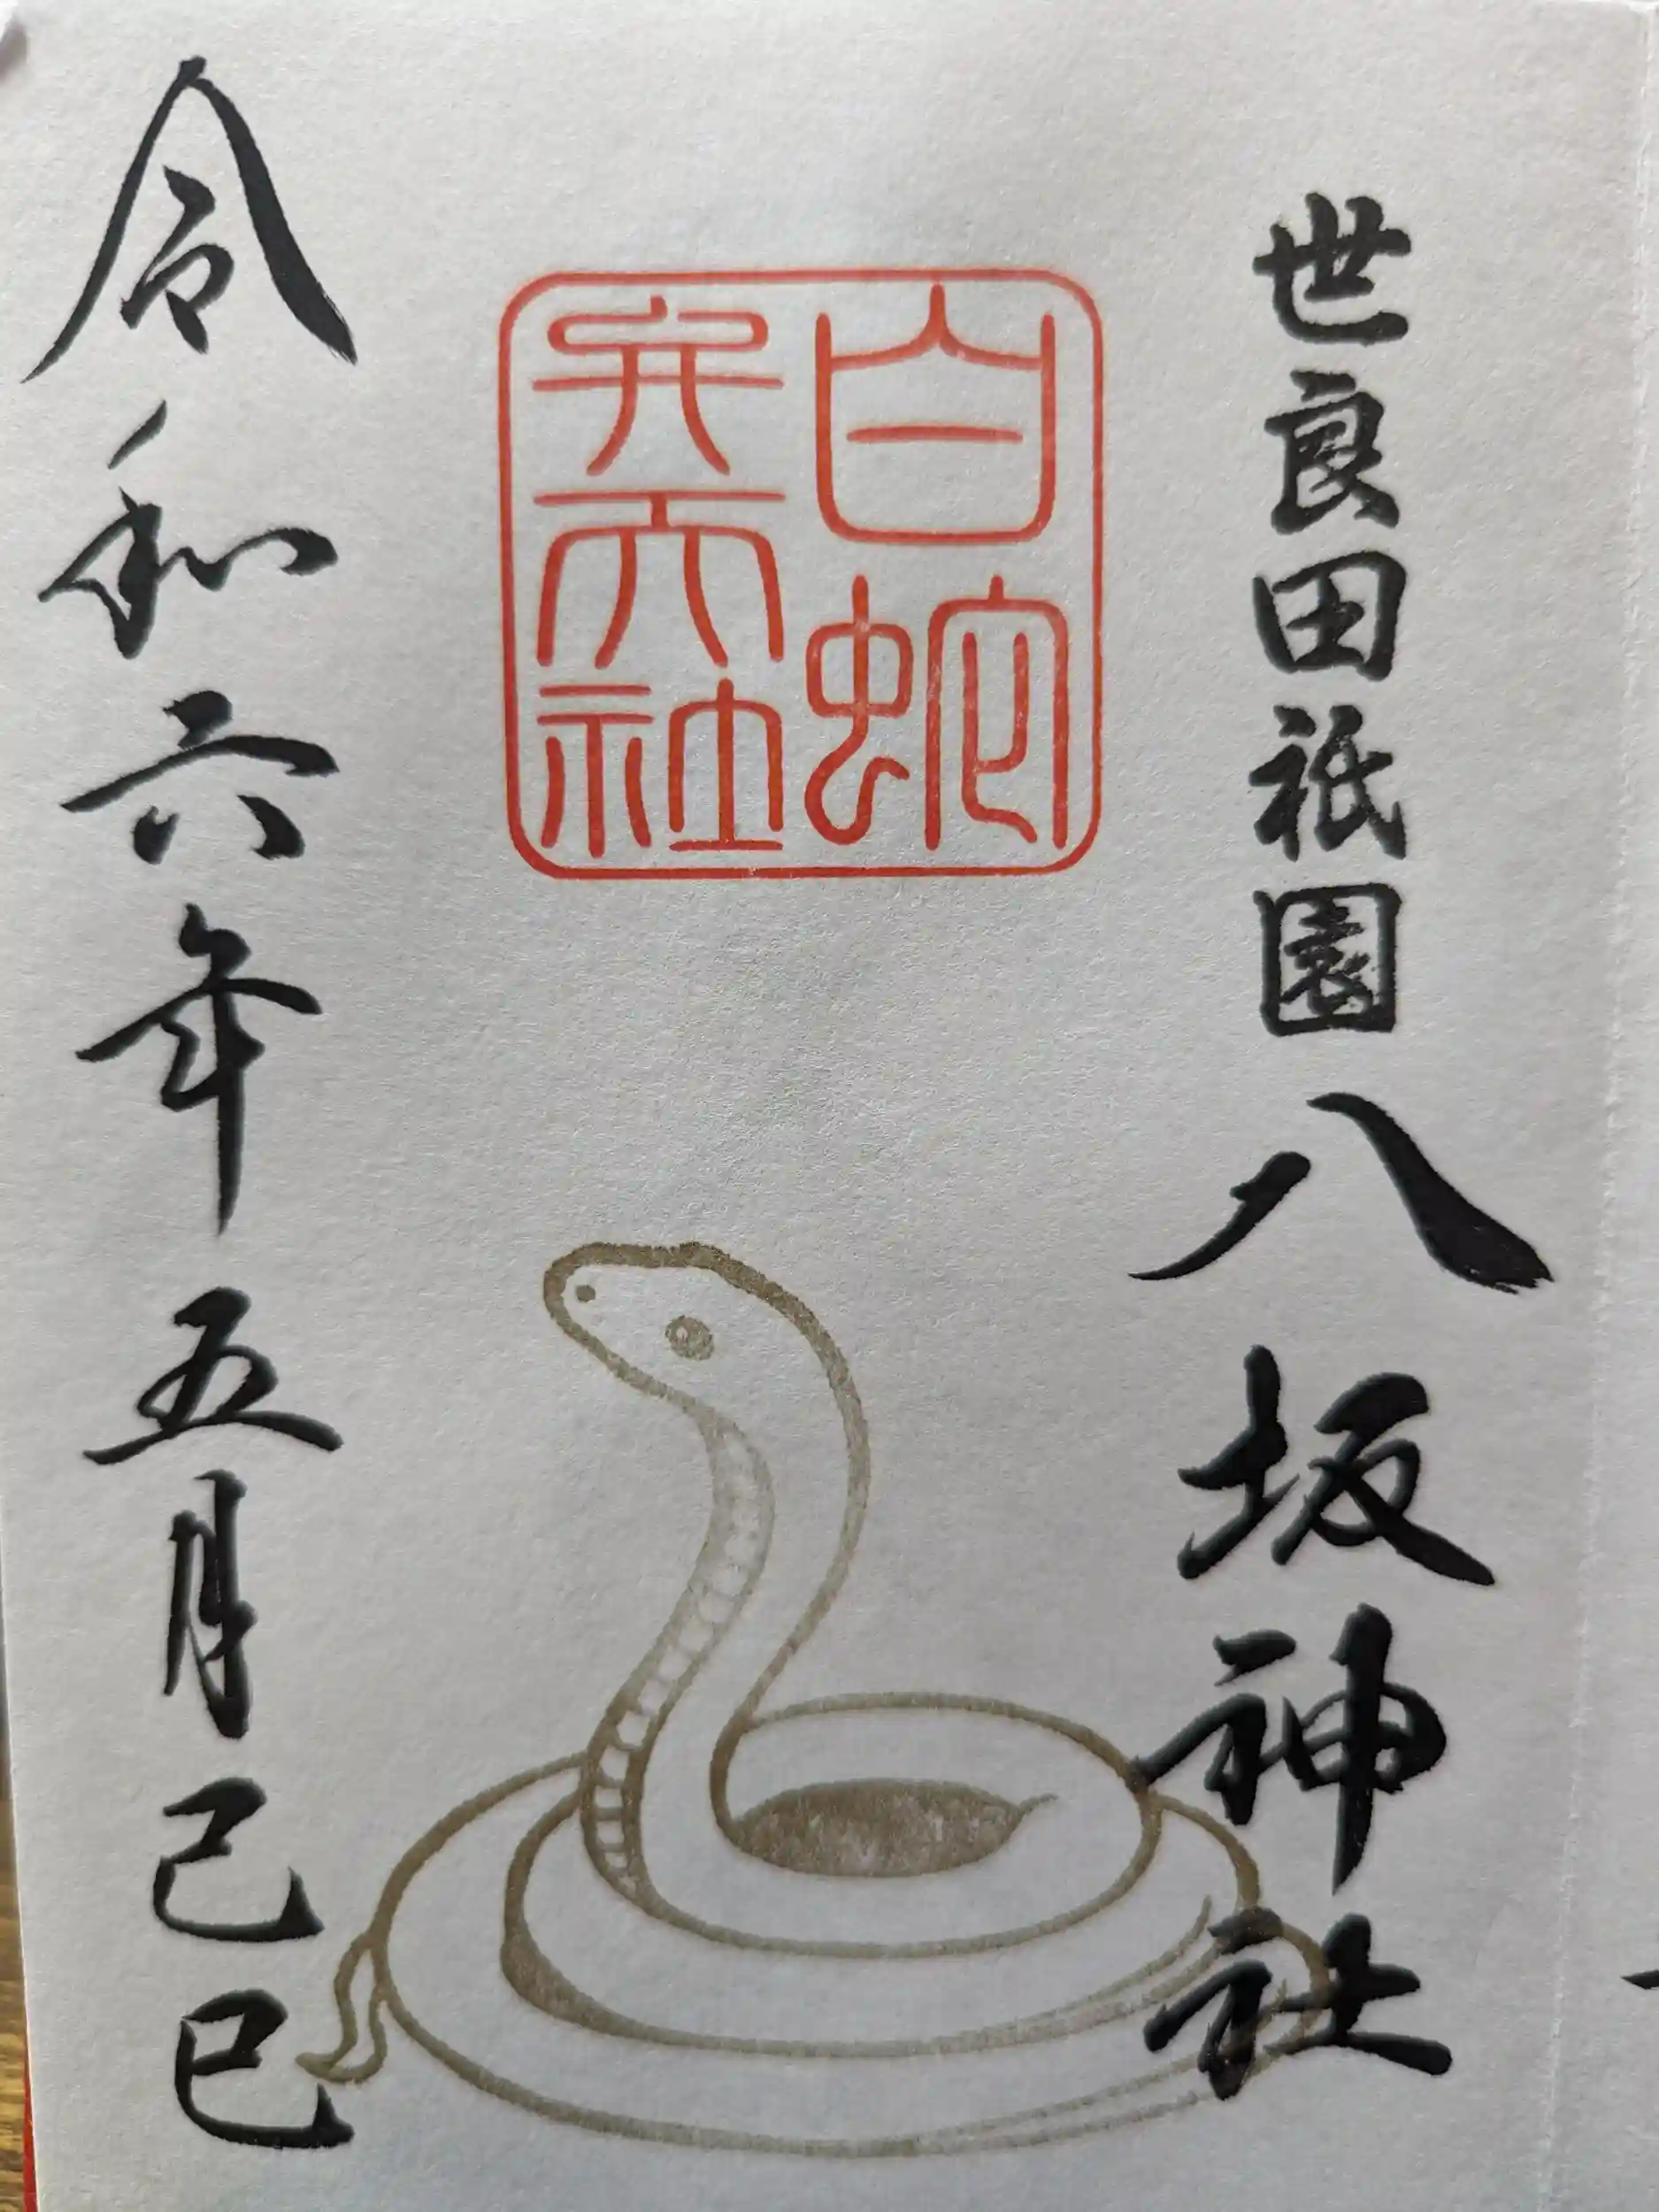 世良田祇園八坂神社
白蛇
弁天社
令和六年五月己巳